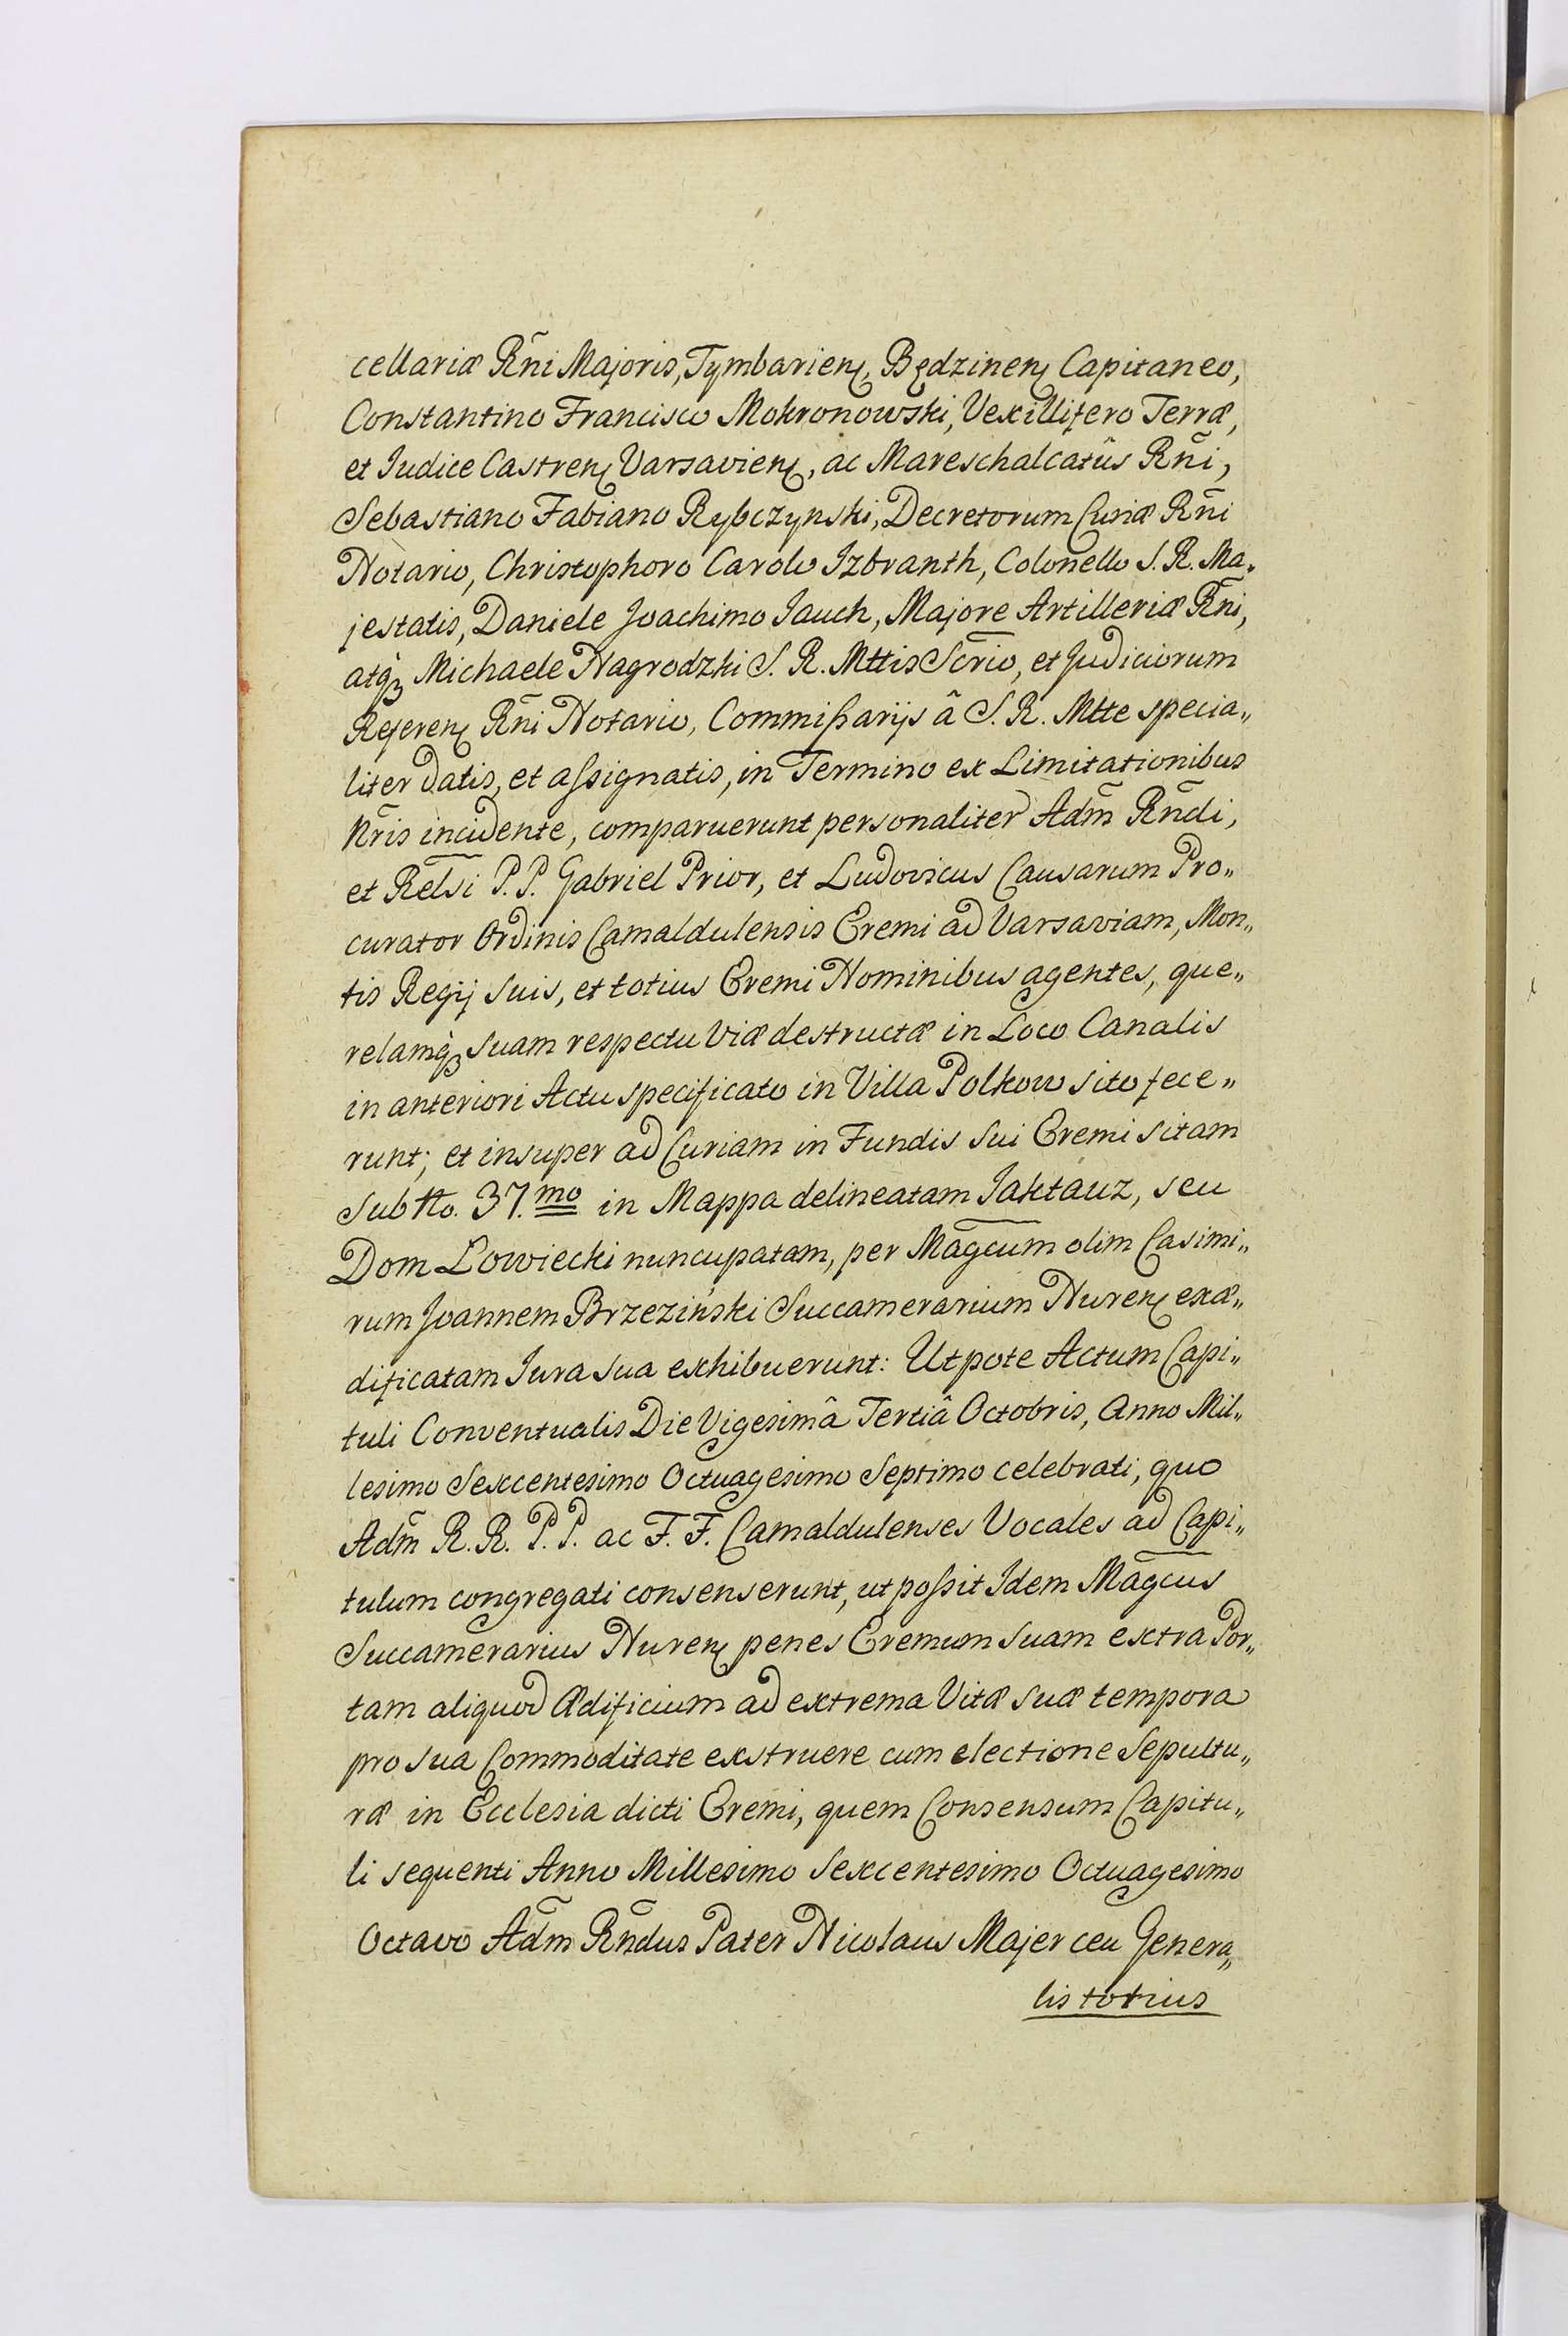 cellariæ Rñi Majoris, Tymbarienꝭ, Będzinenꝭ Capitaneo,
Constantino Francisco Mokronowski, Vexillifero Terræ,
et Judice Castrenꝭ Varsavienꝭ, ac Mareschalcatûs Rñi,
Sebastiano Fabiano Rybczynski, Decretorum Curiæ Rñi
Notario, Christophoro Carolo Izbranth, Colonello S. R. Ma„
jestatis, Daniele Joachimo Jauch, Majore Artilleriæ Rñi,
atqꝫ Michaele Nagrodzki S. R. Mttis Scrio, et Judiciorum
Referenꝭ Rñi Notario, Commißarijs â S. R. Mtte specia„
liter datis, et aſsignatis, in Termino ex Limitationibus
Nr̃is incidente, comparuerunt personaliter Adm̃ Rñdi,
et Relsi P. P. Gabriel Prior, et Ludovicus Causarum Pro„
curator Ordinis Camaldulensis Eremi ad Varsaviam, Mon„
tis Regij suis, et totius Eremi Nominibus agentes, que„
relamqꝫ suam respectu Viæ destructæ in Loco Canalis
in anteriori Actu specificato in Villa Polkow sito fece„
runt; et insuper ad Curiam in Fundis sui Eremi sitam
Sub No. 37.mo in Mappa delineatam Jaktauz, seu
Dom Łowiecki nuncupatam, per Magcum olim Casimi„
rum Joannem Brzeziński Succamerarium Nurenꝭ exæ„
dificatam Jura sua exhibuerunt: Utpote Actum Capi„
tuli Conventualis Die Vigesimâ Tertiâ Octobris, Anno Mil„
lesimo Sexcentesimo Octuagesimo Septimo celebrati, quo
Adm̃ R. R. P. P. ac F. F. Camaldulenses Vocales ad Capi„
tulum congregati consenserunt, ut poſsit Idem Magcus
Succamerarius Nurenꝭ penes Eremum suam extra Por„
tam aliquod Ædificium ad extrema Vitæ suæ tempora
pro sua Commoditate exstruere cum electione Sepultu„
ræ in Ecclesia dicti Eremi, quem Consensum Capitu„
li sequenti Anno Millesimo Sexcentesimo Octuagesimo
Octavo Adm̃ Rñdus Pater Nicolaus Majer ceu Genera„
lis totius